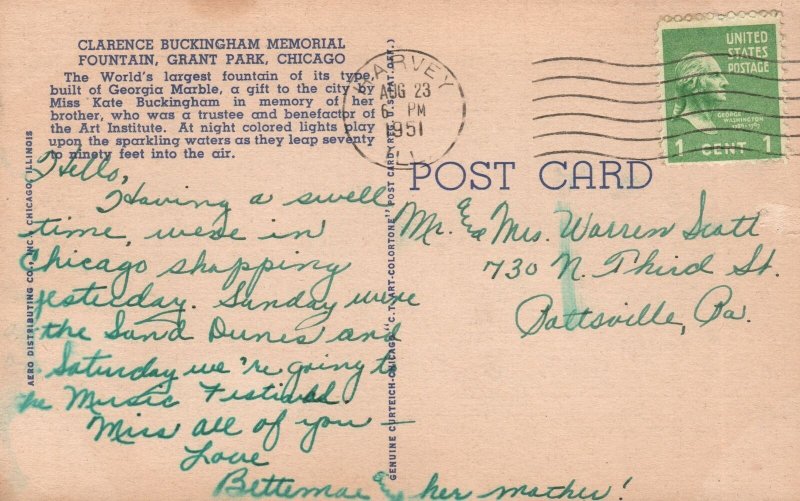 CLARENCE BUCKINGHAM MEMORIAL
FOUNTAIN, GRANT PARK, CHICAGO
The World's largest fountain of its type,
built of Georgia Marble, a gift to the city by
Miss Kate Buckingham in memory of her
brother, who was a trustee and benefactor of
the Art Institute. At night colored lights play
upon the sparkling waters as they leap seventy
to ninety feet into the air.
Hello,
Having a swell
time, were in
Chicago shopping
yesterday. Sunday were
the Sand Dunes and
Saturday we're going to
the Music Festival.
Miss all of you —
Love
Bettemae and her mother!
AERO DISTRIBUTING CO., INC., CHICAGO, ILLINOIS
GENUINE CURTEICH-CHICAGO "C.T. ART-COLORTONE" POST CARD (REG. U.S. PAT. OFF.)
HARVEY
AUG 23
PM
1951
ILL.
UNITED
STATES
POSTAGE
GEORGE
WASHINGTON
1789-1797
1 CENT 1
POST CARD
Mr. and Mrs. Warren Scott
730 N. Third St.
Pottsville, Pa.